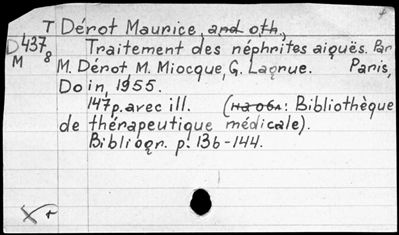 T Dérot Maurice, and oth.,
D437 Traitement des néphrites aiguës. Par
M 8 M. Dérot, M. Miocque, G. Lagrue. Paris,
Doin, 1955.
147p. avec ill. (на обл: Bibliothèque
de thérapeutique médicale).
Bibliogr. p. 136-144.